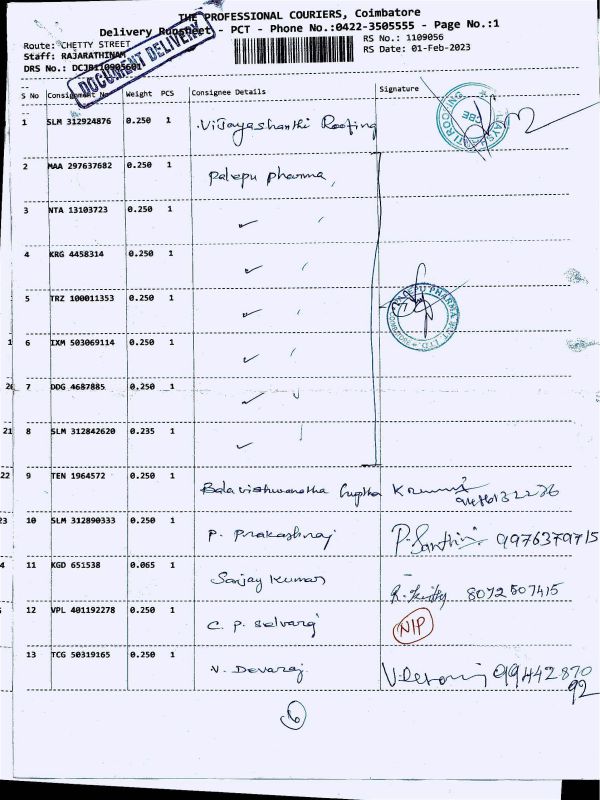 THE PROFESSIONAL COURIERS, Coimbatore
Delivery Runsheet - PCT - Phone No.:0422-3505555 - Page No.:1
Route: CHETTY STREET RS No.: 1109056
Staff: RAJARATHINAM RS Date: 01-Feb-2023
DRS No.: DCJB110905601
DOCUMENT DELIVERY
S No Consignment No Weight PCS Consignee Details Signature
1 SLM 312924876 0.250 1 Vijayashanthi Roofing
2 MAA 297637682 0.250 1 Palepu pharma,
3 NTA 13103723 0.250 1
4 KRG 4458314 0.250 1
5 TRZ 100011353 0.250 1
PALEPU PHARMA PVT. LTD.
6 IXM 503069114 0.250 1
7 DDG 4687885 0.250 1
8 SLM 312842620 0.235 1
9 TEN 1964572 0.250 1 Balavishwanatha Guptha
10 SLM 312890333 0.250 1 P. Prakashraj P. Santhi 9976379715
11 KGD 651538 0.065 1 Sanjay Kumar 8072507415
12 VPL 401192278 0.250 1 C. P. Selvaraj NIP
13 TCG 50319165 0.250 1 V. Devaraj 99442870
92
6